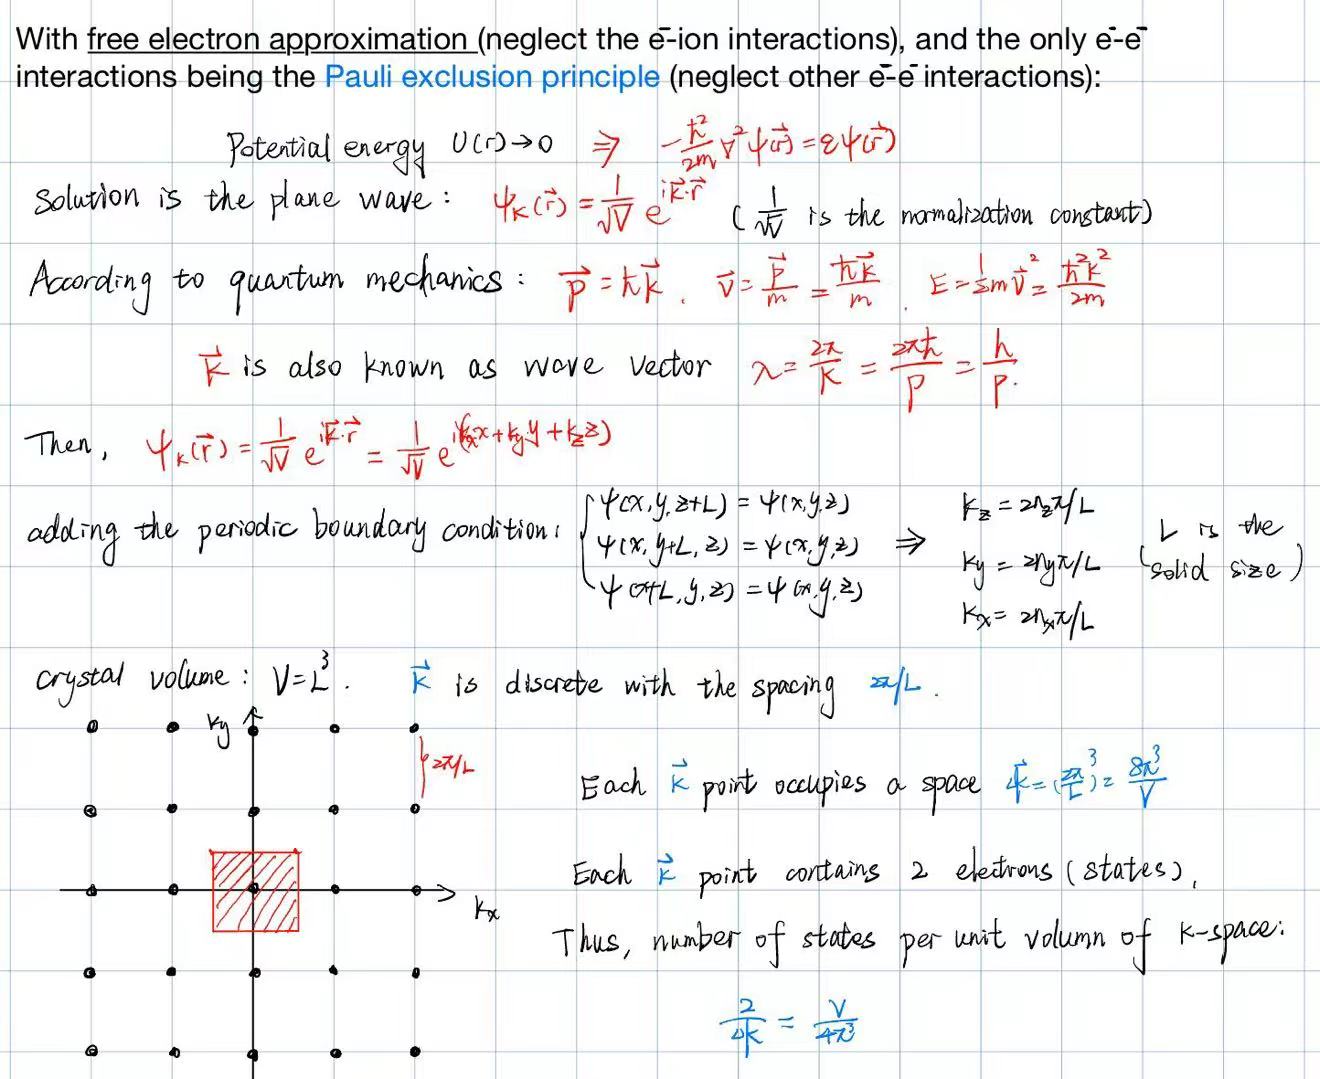 With free electron approximation (neglect the e⁻-ion interactions), and the only e⁻-e⁻
interactions being the Pauli exclusion principle (neglect other e⁻-e⁻ interactions):
Potential energy U(r)→0 ⇒ -ħ²/2m ∇²ψ(r⃗)=εψ(r⃗)
Solution is the plane wave: ψₖ(r⃗) = 1/√V e^{ik⃗·r⃗} (1/√V is the normalization constant)
According to quantum mechanics: p⃗ = ħk⃗. v⃗ = p⃗/m = ħk⃗/m. E = ½mv⃗² = ħ²k²/2m
k⃗ is also known as wave vector λ = 2π/k = 2πħ/p = h/p.
Then, ψₖ(r⃗) = 1/√V e^{ik⃗·r⃗} = 1/√V e^{i(kₓx+k_y y+k_z z)}
adding the periodic boundary condition: { ψ(x,y,z+L) = ψ(x,y,z)
ψ(x,y+L,z) = ψ(x,y,z)
ψ(x+L,y,z) = ψ(x,y,z)
⇒ k_z = 2n_zπ/L
k_y = 2n_yπ/L
kₓ = 2nₓπ/L
(L is the
solid size)
crystal volume: V=L³. k⃗ is discrete with the spacing 2π/L.
k_y
2π/L
kₓ
Each k⃗ point occupies a space Δk=(2π/L)³=8π³/V
Each k⃗ point contains 2 electrons (states),
Thus, number of states per unit volumn of k-space:
2/Δk = V/4π³